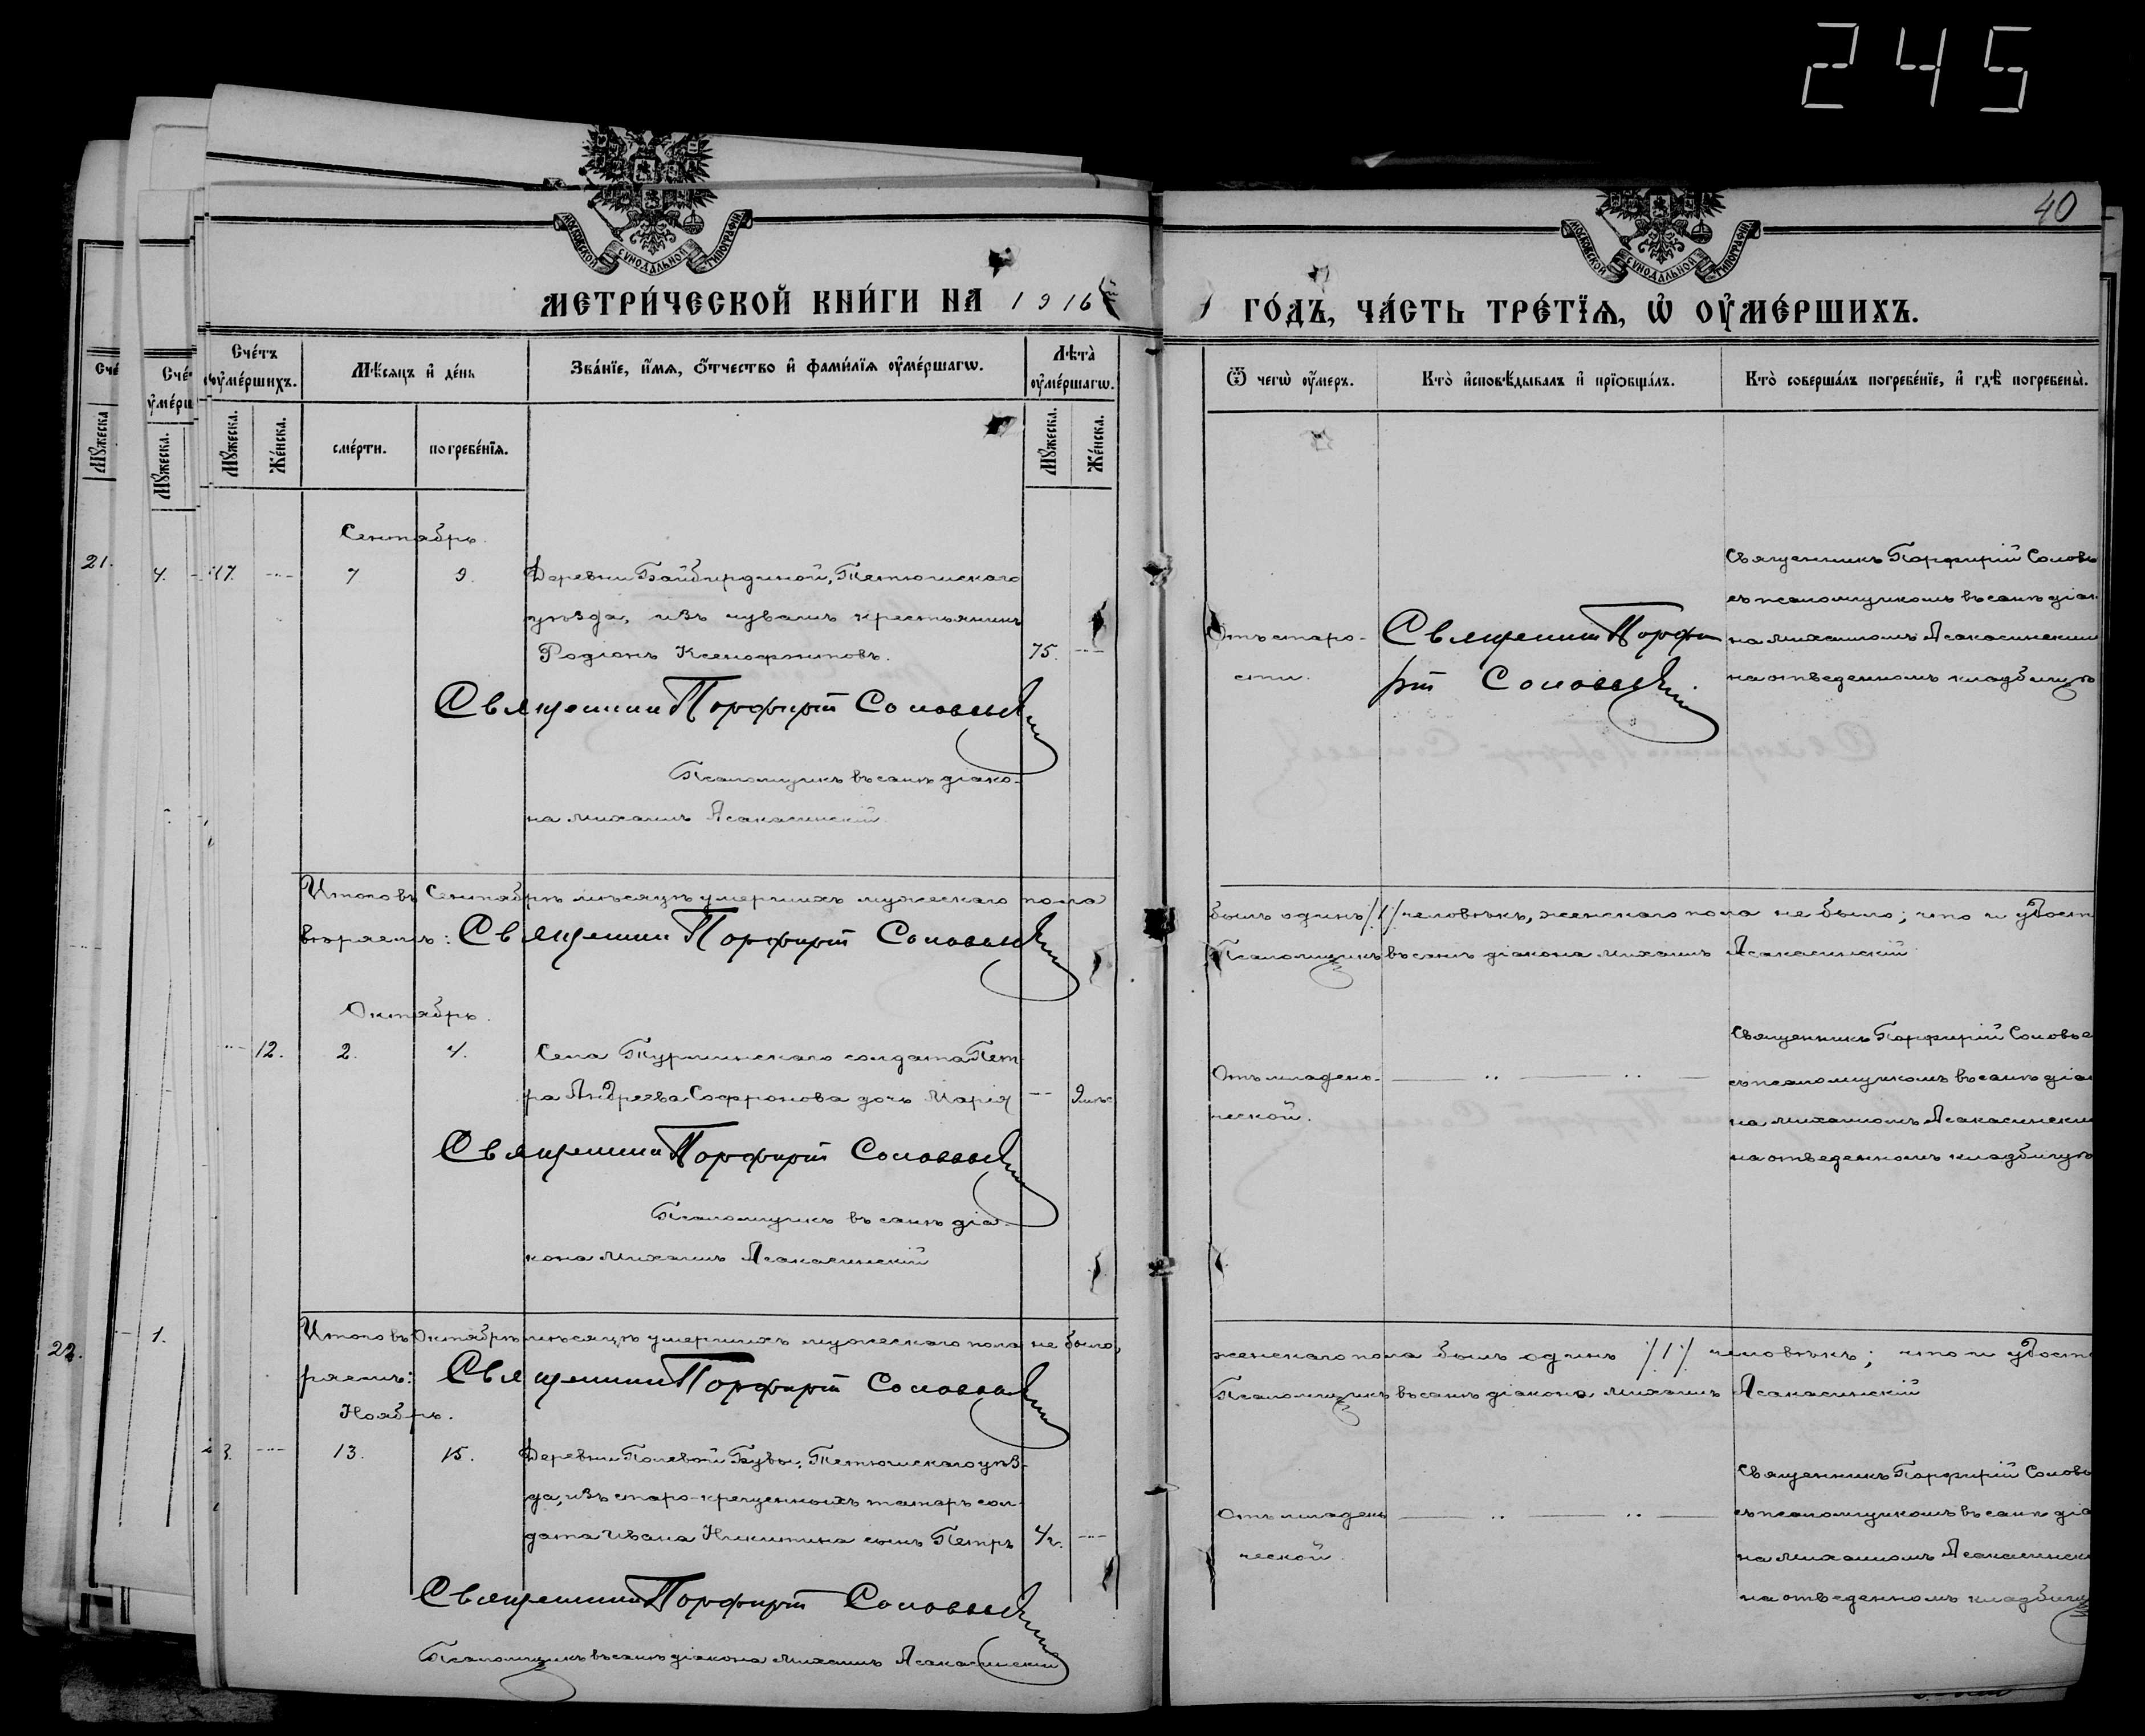 245
40
МОСКОВСКОЙ СѴНОДАЛЬНОЙ ТИПОГРАФІИ
МОСКОВСКОЙ СѴНОДАЛЬНОЙ ТИПОГРАФІИ
МЕТРИ́ЧЕСКОЙ КНИ́ГИ НА 1916
ГО́ДЪ, ЧА́СТЬ ТРЕ́ТЇѦ, Ѡ҆ ОУ҆МЕ́РШИХЪ.
Сче́тъ оу҆ме́ршихъ.
Мѣ́сяцъ и҆ де́нь
Зва́нїе, и҆́мѧ, ѻ҆́тчество и҆ фами́лїѧ оу҆ме́ршагѡ.
Лѣ́та̀ оу҆ме́ршагѡ.
Ѿ чегѡ̀ оу҆́меръ.
Кто̀ и҆сповѣ́дывалъ и҆ прїѡбща́лъ.
Кто̀ соверша́лъ погребе́нїе, и҆ гдѣ̀ погребены̀.
Мꙋ́жеска.
Же́нска.
сме́рти.
погребе́нїѧ.
Мꙋ́жеска.
Же́нска.
Сентябрь.
17. 7 9. Деревни Байбирдиной, Тетюшскаго
уѣзда, изъ чувашъ крестьянинъ
Родіонъ Ксенофонтовъ. 75.
Священникъ Порфирій Соловьевъ
Псаломщикъ въ санѣ діако-
на Михаилъ Асакасинскій
Отъ старо-
сти.
Священникъ Порфи
рій Соловьевъ
Священникъ Порфирій Соловь
съ псаломщикомъ въ санѣ діак
на Михаиломъ Асакасинским
на отведенномъ кладбищѣ
Итого въ Сентябрѣ мѣсяцѣ умершихъ мужескаго пола
былъ одинъ /1/ человѣкъ, женскаго пола не было; что и удост
вѣряемъ: Священникъ Порфирій Соловьевъ
Псаломщикъ въ санѣ діакона Михаилъ Асакасинскій
Октябрь.
12. 2. 4. Села Турминскаго солдата Пет
ра Андреева Софронова дочь Марія 9 мѣс
Священникъ Порфирій Соловьевъ
Псаломщикъ въ санѣ діа-
кона Михаилъ Асакасинскій
Отъ младен-
ческой.
Священникъ Порфирій Соловье
съ псаломщикомъ въ санѣ діа
на Михаиломъ Асакасински
на отведенномъ кладбищѣ
Итого въ Октябрѣ мѣсяцѣ умершихъ мужескаго пола не было,
женскаго пола былъ одинъ /1/ человѣкъ; что и удост
ряемъ: Священникъ Порфирій Соловьевъ
Псаломщикъ въ санѣ діакона Михаилъ Асакасинскій
Ноябрь.
13. 15. Деревни Полевой Бувы, Тетюшскаго уѣз-
да, изъ старо-крещенныхъ татаръ сол-
дата Ивана Никитина сынъ Петръ 4 г.
Священникъ Порфирій Соловьевъ
Псаломщикъ въ санѣ діакона Михаилъ Асакасинскій
Отъ младен
ческой.
Священникъ Порфирій Соловь
съ псаломщикомъ въ санѣ діа
на Михаиломъ Асакасинск
на отведенномъ кладбищ